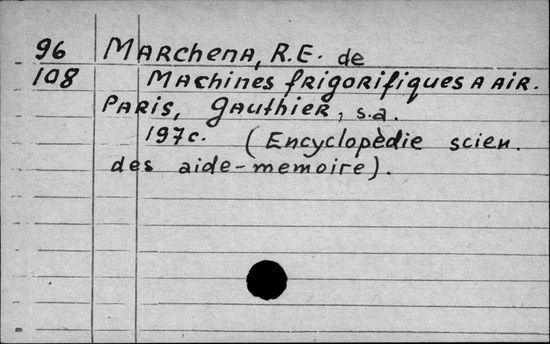 96 MARchenA, R.E. de
108 MAchines fRigoRifiques A AIR.
PARis, gAuthieR, s.a.
197c. (Encyclopèdie scien.
des aide-memoire).